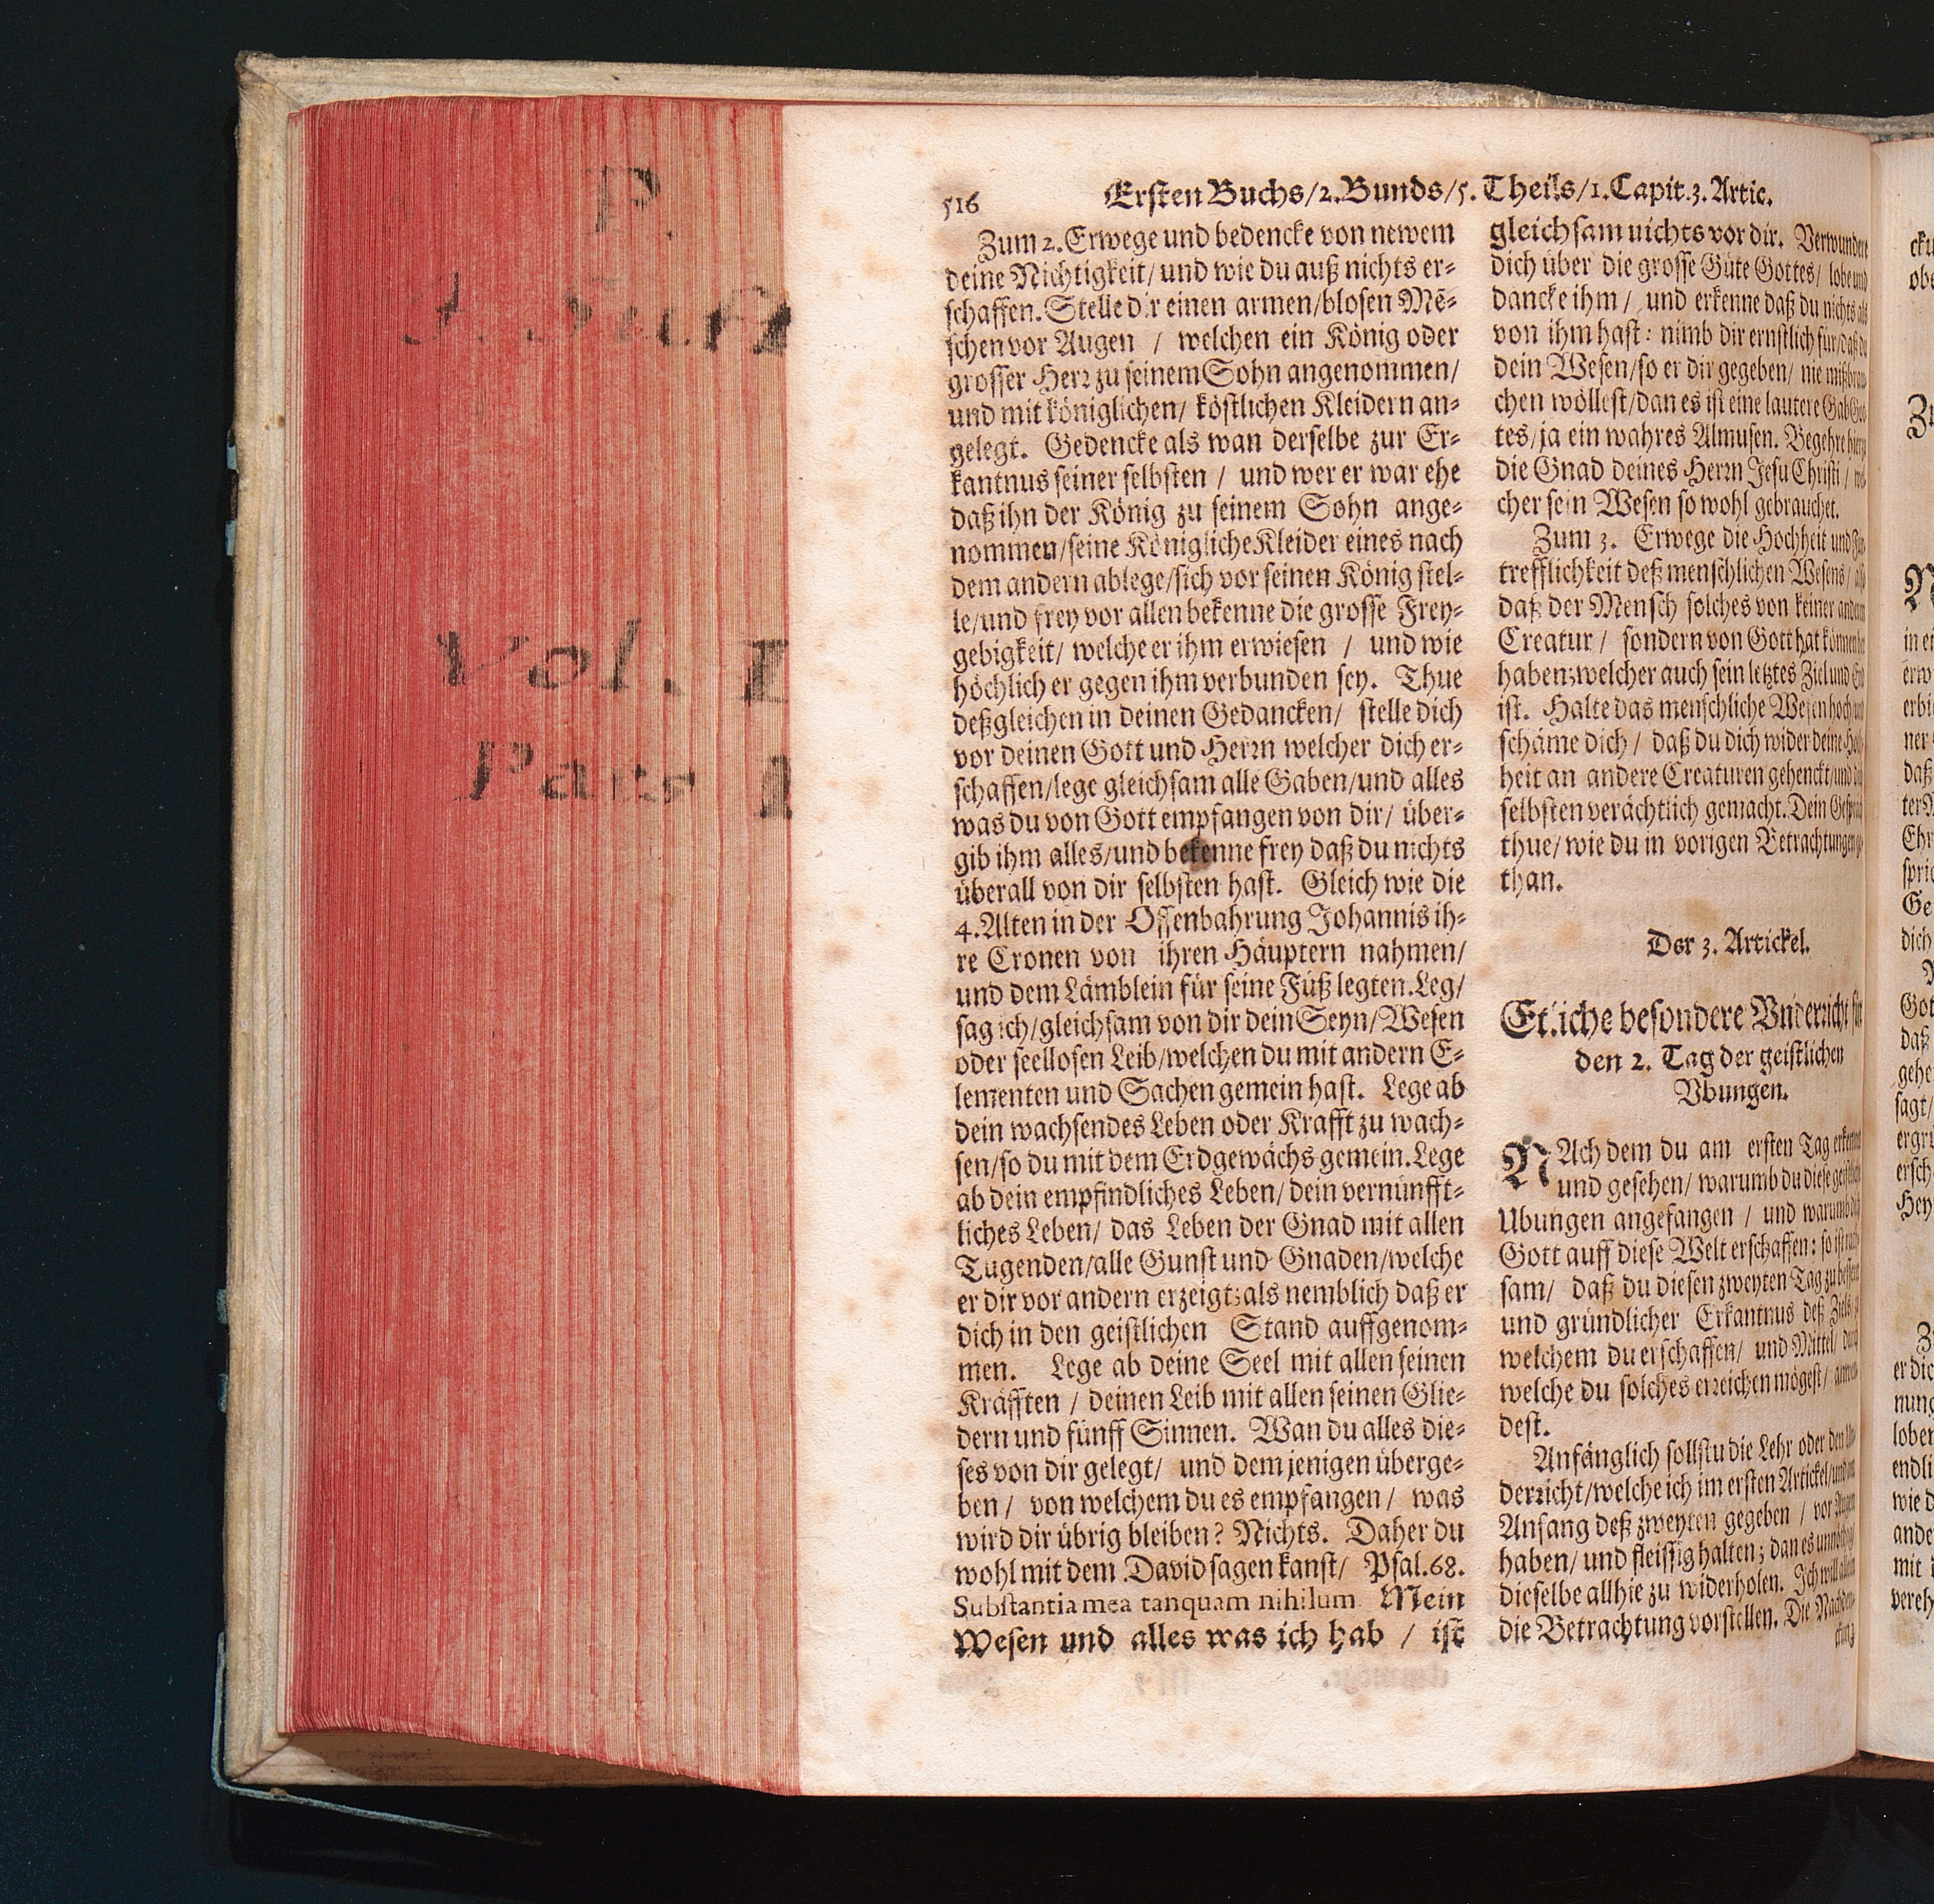 P.
Vol. I
Pars
516
Ersten Buchs/2. Bunds/5. Theils/1. Capit. 3. Artic.
Zum 2. Erwege und bedencke von newem
deine Nichtigkeit/ und wie du auß nichts er-
schaffen. Stelle dir einen armen/blosen Mē-
schen vor Augen / welchen ein König oder
grosser Herr zu seinem Sohn angenommen/
und mit königlichen/ köstlichen Kleidern an-
gelegt. Gedencke als wan derselbe zur Er-
kantnus seiner selbsten / und wer er war ehe
daß ihn der König zu seinem Sohn ange-
nommen/seine Königliche Kleider eines nach
dem andern ablege/sich vor seinen König stel-
le/und frey vor allen bekenne die grosse Frey-
gebigkeit/ welche er ihm erwiesen / und wie
höchlich er gegen ihm verbunden sey. Thue
deßgleichen in deinen Gedancken/ stelle dich
vor deinen Gott und Herrn welcher dich er-
schaffen/lege gleichsam alle Gaben/und alles
was du von Gott empfangen von dir/ über-
gib ihm alles/und bekenne frey daß du nichts
überall von dir selbsten hast. Gleich wie die
4. Alten in der Offenbahrung Johannis ih-
re Cronen von ihren Häuptern nahmen/
und dem Lämblein für seine Füß legten. Leg/
sag ich/gleichsam von dir dein Seyn/Wesen
oder seellosen Leib/welchen du mit andern E-
lementen und Sachen gemein hast. Lege ab
dein wachsendes Leben oder Krafft zu wach-
sen/so du mit dem Erdgewächs gemein. Lege
ab dein empfindliches Leben/ dein vernünfft-
liches Leben/ das Leben der Gnad mit allen
Tugenden/alle Gunst und Gnaden/welche
er dir vor andern erzeigt; als nemblich daß er
dich in den geistlichen Stand auffgenom-
men. Lege ab deine Seel mit allen seinen
Kräfften / deinen Leib mit allen seinen Glie-
dern und fünff Sinnen. Wan du alles die-
ses von dir gelegt/ und dem jenigen überge-
ben / von welchem du es empfangen / was
wird dir übrig bleiben? Nichts. Daher du
wohl mit dem David sagen kanst/ Psal. 68.
Substantia mea tanquam nihilum. Mein
Wesen und alles was ich hab / ist
gleichsam uichts vor dir. Verwundere
dich über die grosse Güte Gottes/ lobe und
dancke ihm / und erkenne daß du nichts als
von ihm hast: nimb dir ernstlich für/daß du
dein Wesen/so er dir gegeben/ nie mißbrau-
chen wöllest/dan es ist eine lautere Gab Got-
tes/ja ein wahres Almusen. Begehre hierzu
die Gnad deines Herrn Jesu Christi / wel-
cher sein Wesen so wohl gebrauchet.
Zum 3. Erwege die Hochheit und
trefflichkeit deß menschlichen Wesens/ also
daß der Mensch solches von keiner andern
Creatur / sondern von Gott hat können
haben; welcher auch sein letztes Ziel und End
ist. Halte das menschliche Wesen hoch und
schäme dich / daß du dich wider deine Hoch-
heit an andere Creaturen gehenckt/und dich
selbsten verächtlich gemacht. Dein Gespräch
thue/ wie du in vorigen Betrachtungen ge-
than.
Der 3. Artickel.
Etliche besondere Vnderricht für
den 2. Tag der geistlichen
Vbungen.
NAch dem du am ersten Tag erkennt
und gesehen/ warumb du diese geistliche
Ubungen angefangen / und warumb dich
Gott auff diese Welt erschaffen: so ist rath-
sam/ daß du diesen zweyten Tag zu besserer
und gründlicher Erkantnus deß Ziels/ zu
welchem du erschaffen/ und Mittel/ durch
welche du solches erreichen mögest/ anwen-
dest.
Anfänglich sollstu die Lehr oder den Un-
derricht/welche ich im ersten Artickel/und im
Anfang deß zweyten gegeben / vor Augen
haben/ und fleissig halten; dan es unnöthig
dieselbe allhie zu widerholen. Ich will allein
die Betrachtung vorstellen. Die Nachden-
ckung